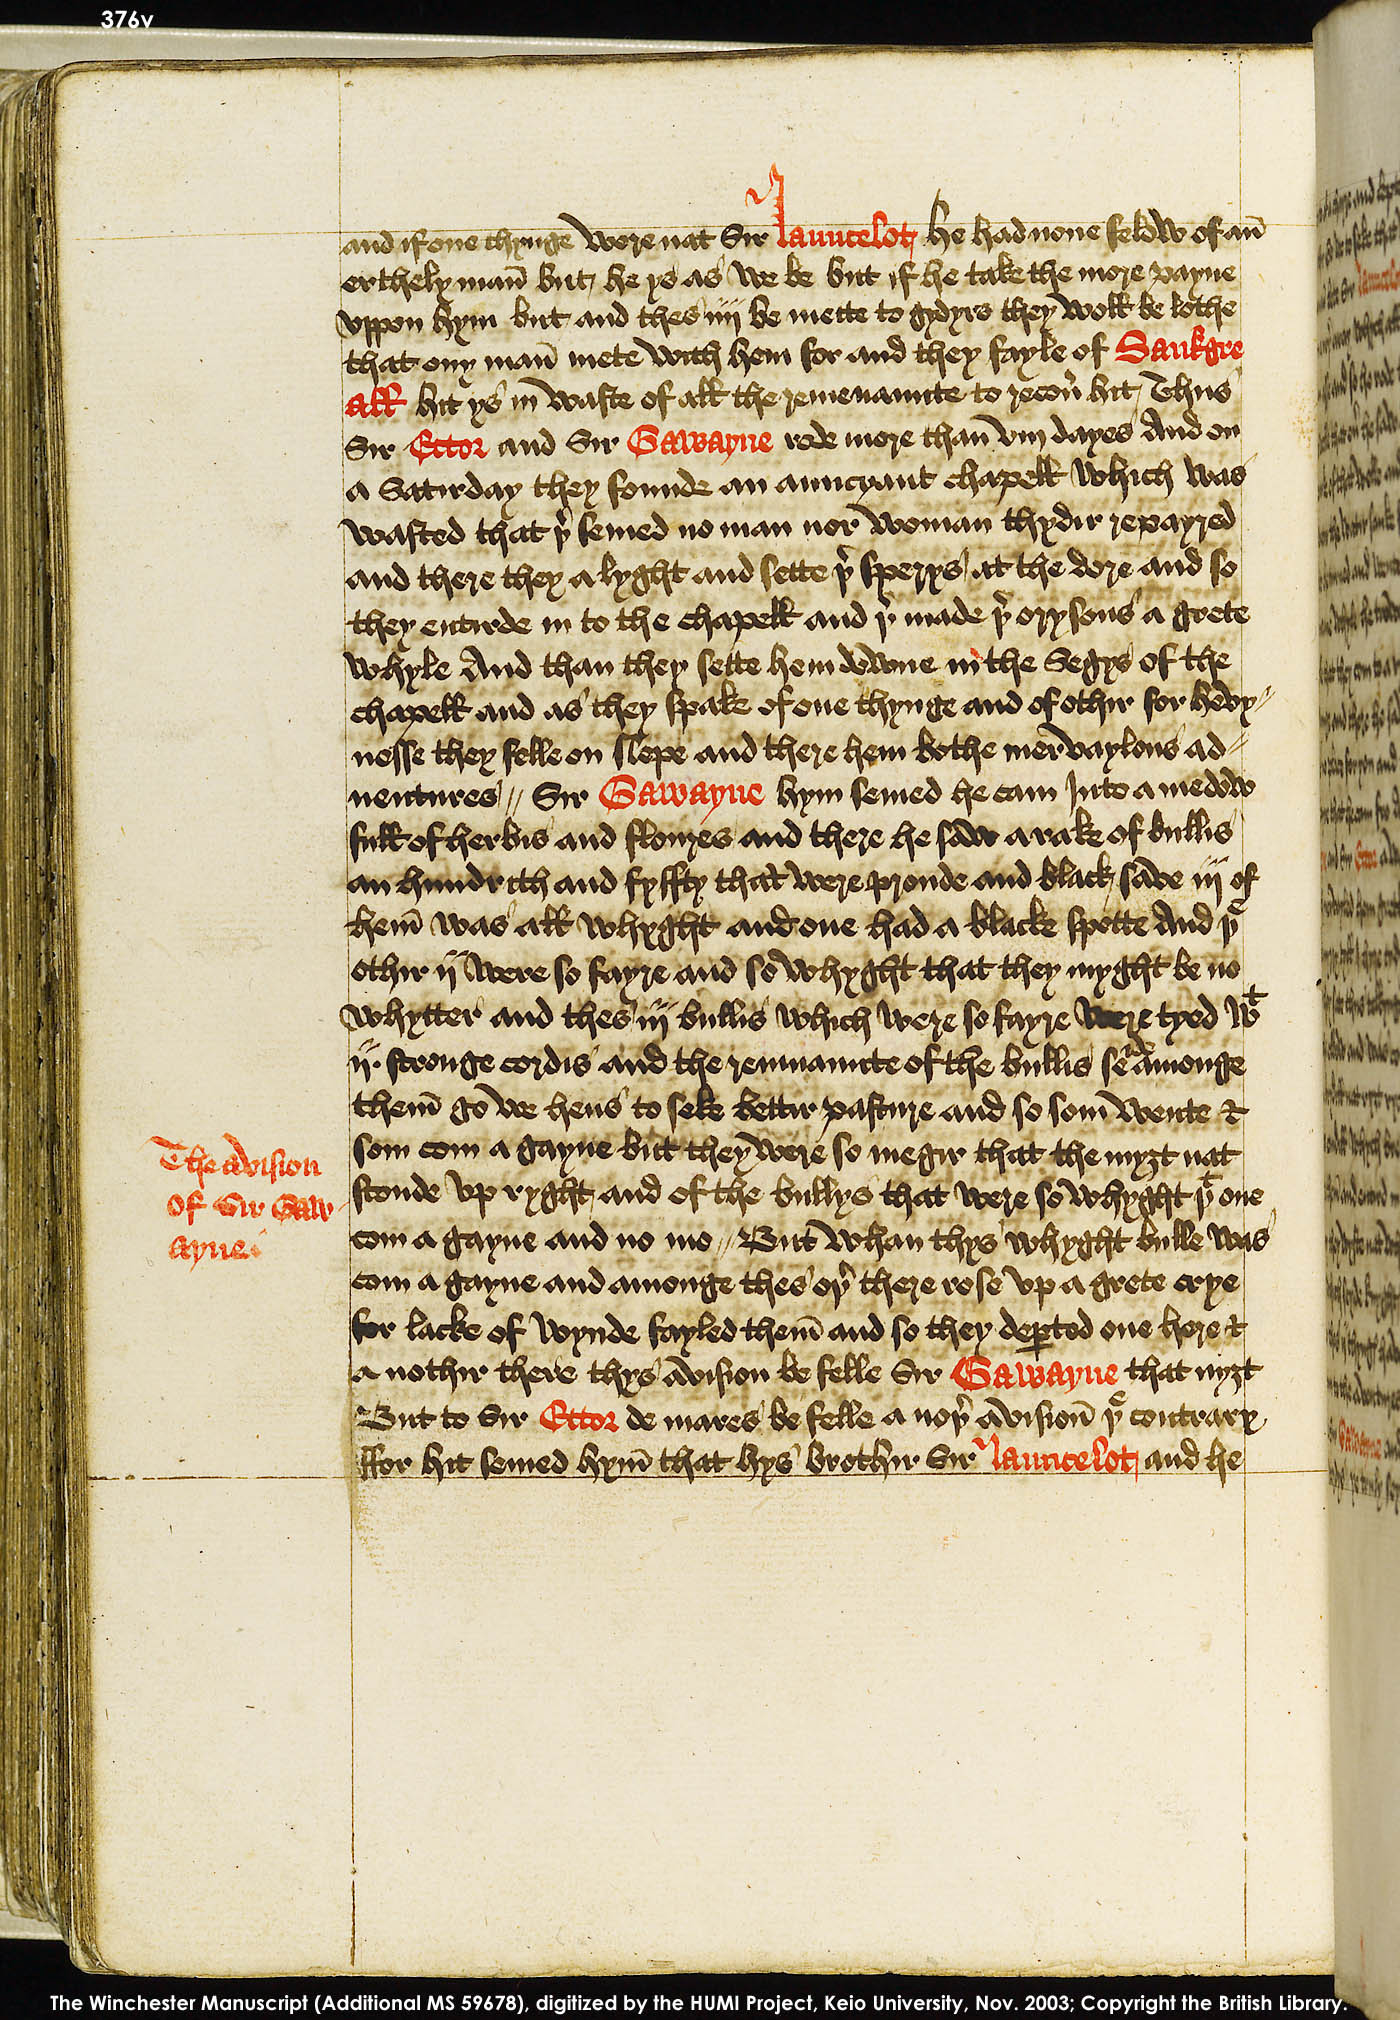 376v
and if one thynge were nat Sir Launcelot he had none felow of an̄
erthely man̄ but he ys as we be but if he take the more payne
vppon hym but and thes iiij be mette to gydyrs they woll be lothe
that ony man̄ mete with hem for and they fayle of Sankgre
all hit ys in waste of all the remenaunte to recou̾ hit Thus
Sir Ector and Sir Gawayne rode more than viij dayes And on
a Satirday they founde an auncyant chapell which was
wasted that þ̾ semed no man nor woman thydir repayred
and there they a lyght and sette þ̾ sperys at the dore and so
they entirde in to the chapell and þ̾ made þ̾ orysons a grete
whyle And than they sette hem downe in the Segys of the
chapell and as they spake of one thynge and of othir for hevy⸗
nesse they felle on slepe and there hem bothe mervaylous ad⸗
uentures // Sir Gawayne hym semed he cam Into a medow
full of herbis and floures and there he saw a rake of bullis
an hundrith and fyffty that were proude and black save iij of
hem̄ was all whyght and one had a blacke spotte And þᵉ
othir ij were so fayre and so whyght that they myght be no
whytter and thes iij bullis which were so fayre were tyed wᵗ
ij stronge cordis and the remnaunte of the bullis seyd amonge
them̄ go we hens to seke bettir pasture and so som̄ wente &
som com a gayne but they were so megir that the myȝt nat
stonde vp ryght and of the bullys that were so whyght þᵗ one
com a gayne and no mo // But whan thys whyght bulle was
com a gayne and amonge thes oþ̾ there rose vp a grete crye
for lacke of wynde fayled them̄ and so they deꝑted one here &
a nothir there thys avision be felle Sir Gawayne that nyȝt
But to Sir Ector de mares be felle a noþ̾ avision̄ þᵉ contrary
ffor hit semed hym̄ that hys brothir Sir Launcelot and he
The avision
of Sir Gaw
ayne
The Winchester Manuscript (Additional MS 59678), digitized by the HUMI Project, Keio University, Nov. 2003; Copyright the British Library.